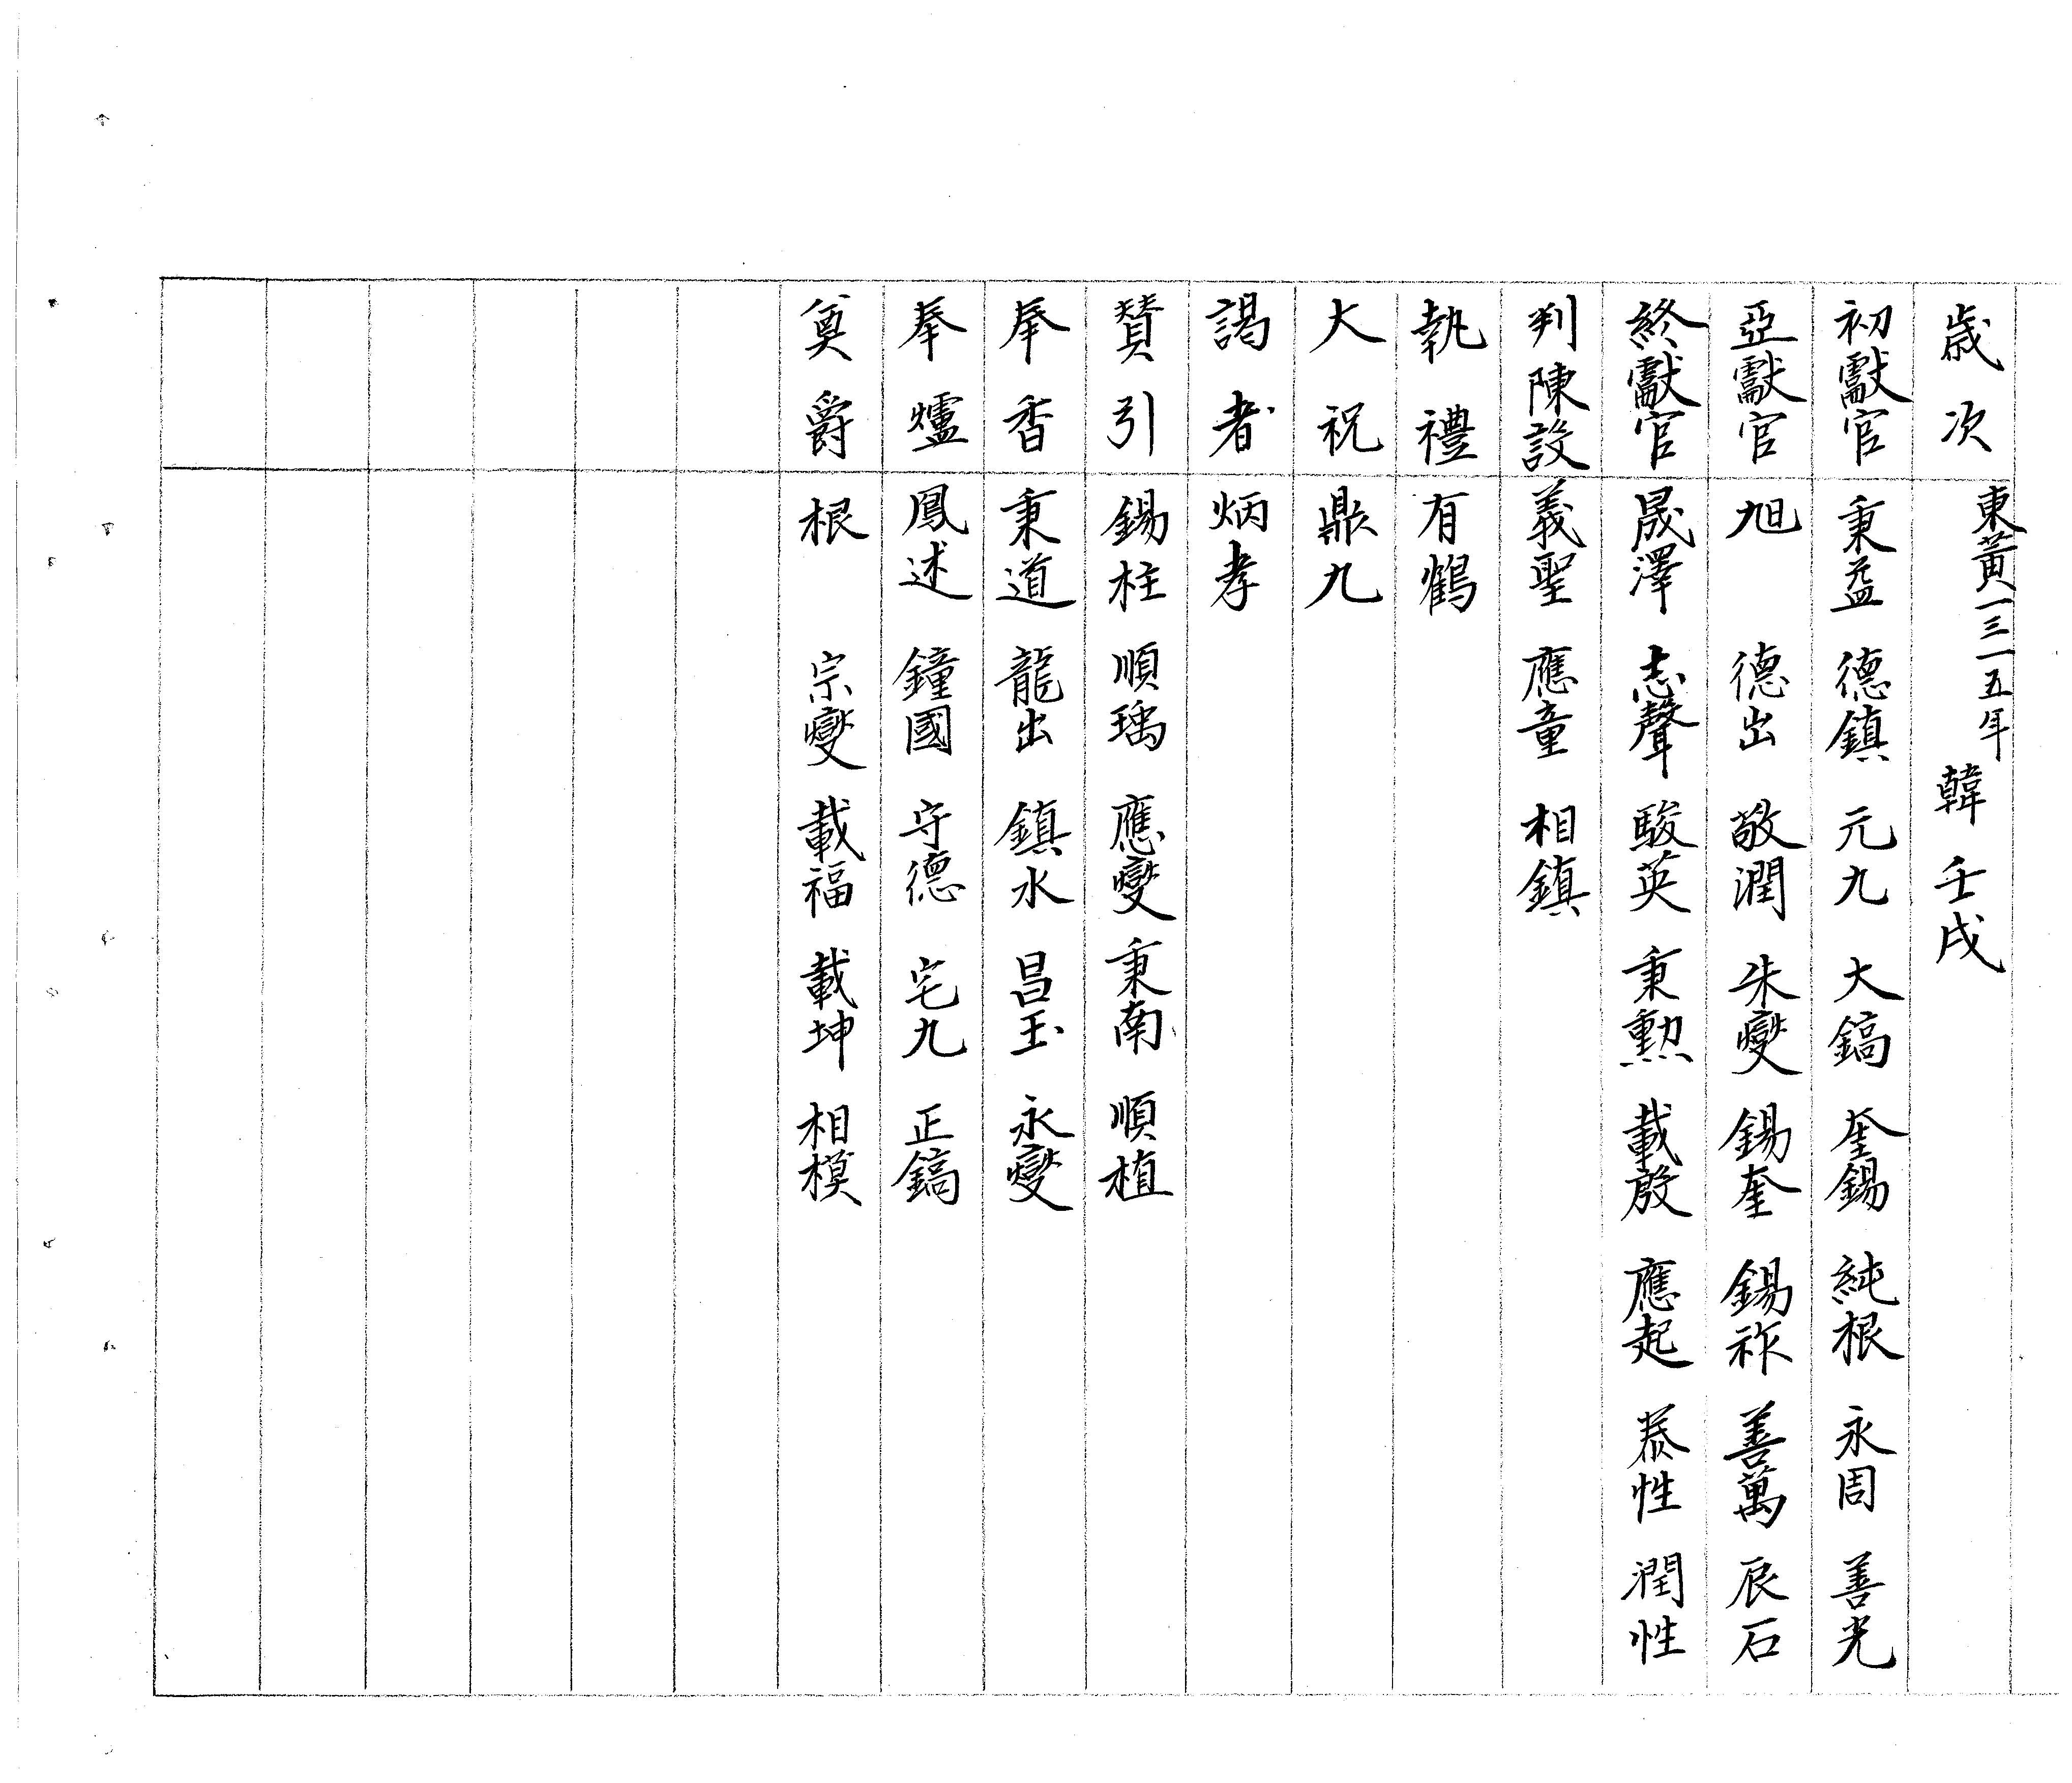 歲次 東黃一三一五年 韓 壬戌
初獻官 秉益 德鎮 元九 大鎬 奎錫 純根 永周 善光
亞獻官 旭 德出 敬潤 朱燮 錫奎 錫祚 善萬 辰石
終獻官 晟澤 志聲 駿英 秉勳 載殷 應起 恭性 潤性
判陳設 義聖 應童 相鎮
執禮 有鶴
大祝 鼎九
謁者 炳孝
贊引 錫柱 順瑀 應燮 秉南 順植
奉香 秉道 龍出 鎮水 昌玉 永燮
奉爐 鳳述 鐘國 守德 宅九 正鎬
奠爵 根 宗燮 載福 載坤 相模